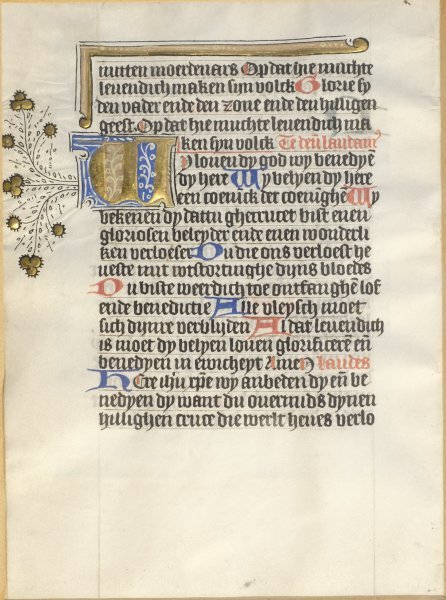 mitten moerdenars Op dat hie muchte
leuendich maken syn volck Glorie sy
den vader ende den zone ende den hilligen
geest Op dat hie muchte leuendich ma
ken syn volck Te deū laudam
Wy louen dy god wy benedyē
dy here Wy belyen dy here
een coenick der coenīghe Wy
bekenen dy dattu gherucet biste enen
gloriosen beleyder ende enen wonderli
ken verloeser Du die ons verloest he
ueste mit wtstortinghe dijns bloedes
Du biste weerdich toe ontfanghē lof
ende benedictie Alle vleysch moet
sich dynre verblijden Al dat leuendich
is moet dy belyen louen glorificerē eñ
benedyen in ewicheyt Amen Laudes
Here ihū xpē wy anbeden dy eñ be
nedyen dy want du ouermids dynen
hillighen cruce die werlt heues verlo